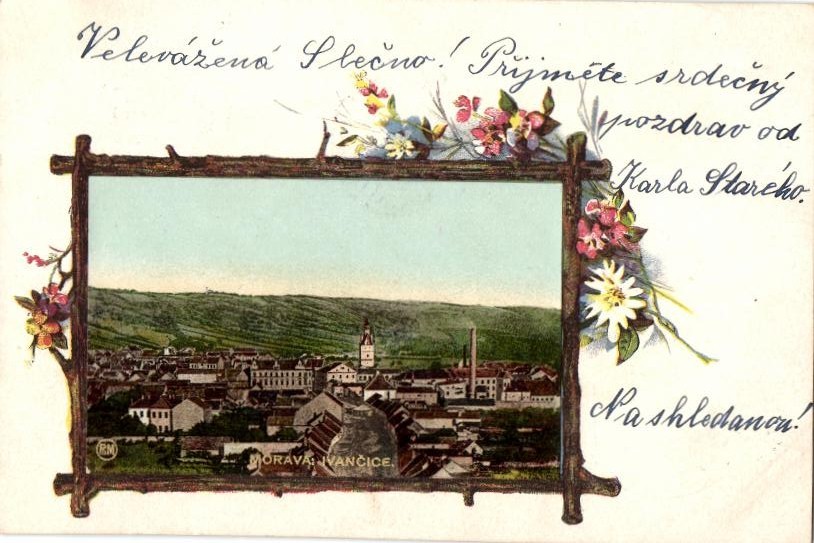 Velevážená Slečno! Přijměte srdečný
pozdrav od
Karla Starého.
Na shledanou!
MORAVA: IVANČICE.